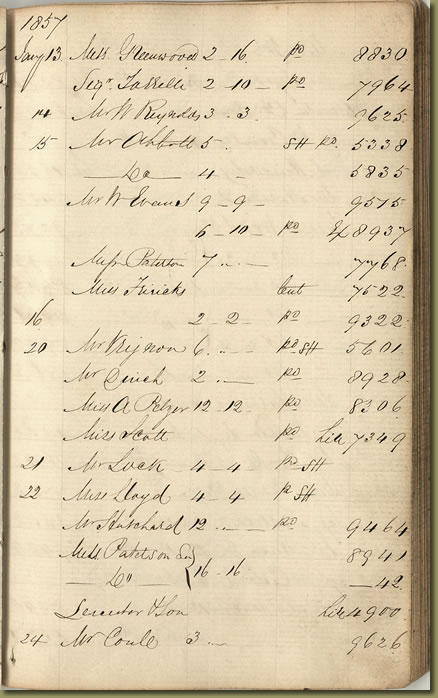 1857
Jany 13 Mess Greenwood 2 - 16 - pd 8830
Segr 2 - 10 - pd 7964
14 Mr W Reynolds 3 . 3 . 9625
15 Mr Abbott 5 . SH pd. 5338
— Do — 4 — 5835
Mr W Evans 9 - 9 - 9515
6 - 10 - pd 8937
Miss Paterson 7 .. — 7768
Miss 7522
16 2 - 2 - pd 9322
20 Mr Kynon 6 .. — pd SH 5601
Mr 2 .. — pd 8928
Miss A Pelzer 12 - 12 . pd 8306
Miss Scott pd 7349
21 Mr Lock 4 - 4 pd SH
22 Miss Lloyd 4 - 4 SH
Mr Hatchard 12 .. — pd 9464
Mess Paterson 8941
— Do — 16 - 16 — 42
& Son 4900
24 Mr 3 .. 9626